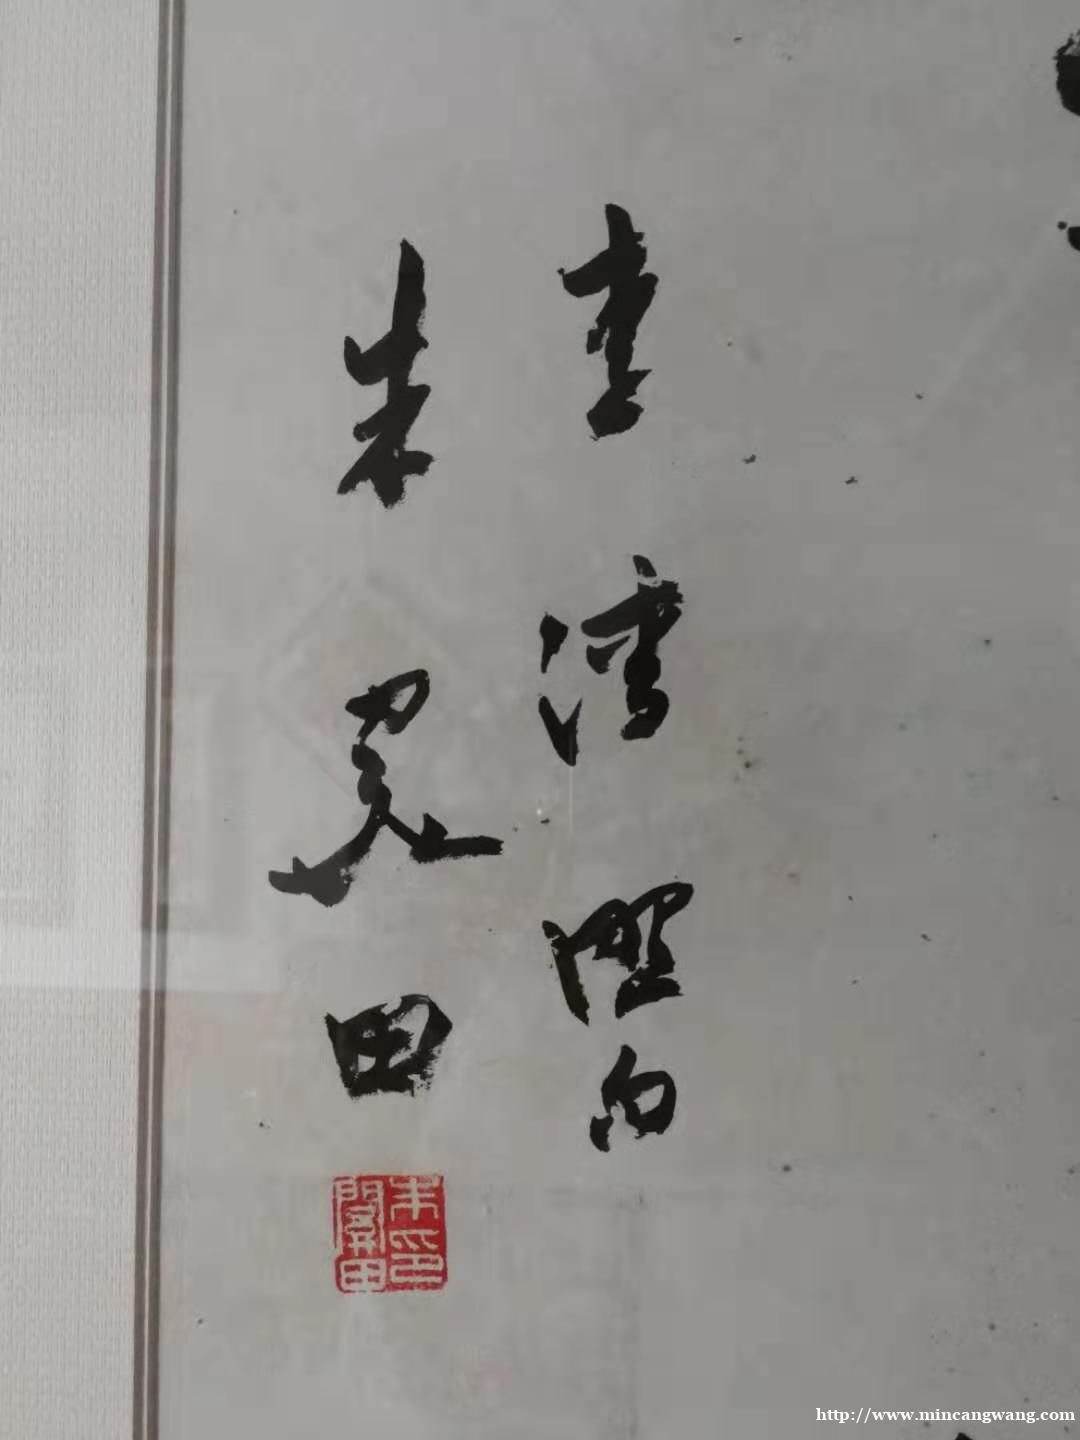 書清照句
朱關田
朱印
關田
http://www.mincangwang.com